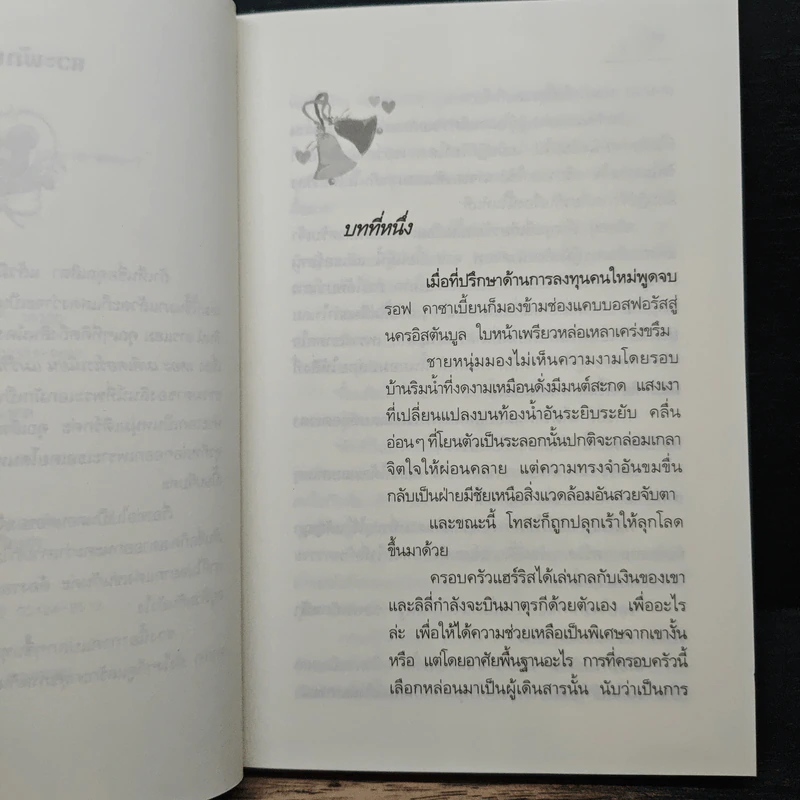 บทที่หนึ่ง
เมื่อที่ปรึกษาด้านการลงทุนคนใหม่พูดจบ
รอฟ คาซาเบี้ยนก็มองข้ามช่องแคบบอสฟอรัสสู่
นครอิสตันบูล ใบหน้าเพรียวหล่อเหลาเคร่งขรึม
ชายหนุ่มมองไม่เห็นความงามโดยรอบ
บ้านริมน้ำที่งดงามเหมือนดั่งมีมนต์สะกด แสงเงา
ที่เปลี่ยนแปลงบนท้องน้ำอันระยิบระยับ คลื่น
อ่อนๆ ที่โยนตัวเป็นระลอกนั้นปกติจะกล่อมเกลา
จิตใจให้ผ่อนคลาย แต่ความทรงจำอันขมขื่น
กลับเป็นฝ่ายมีชัยเหนือสิ่งแวดล้อมอันสวยจับตา
และขณะนี้ โทสะก็ถูกปลุกเร้าให้ลุกโลด
ขึ้นมาด้วย
ครอบครัวแฮร์ริสได้เล่นกลกับเงินของเขา
และลิลี่กำลังจะบินมาตุรกีด้วยตัวเอง เพื่ออะไร
ล่ะ เพื่อให้ได้ความช่วยเหลือเป็นพิเศษจากเขางั้น
หรือ แต่โดยอาศัยพื้นฐานอะไร การที่ครอบครัวนี้
เลือกหล่อนมาเป็นผู้เดินสารนั้น นับว่าเป็นการ